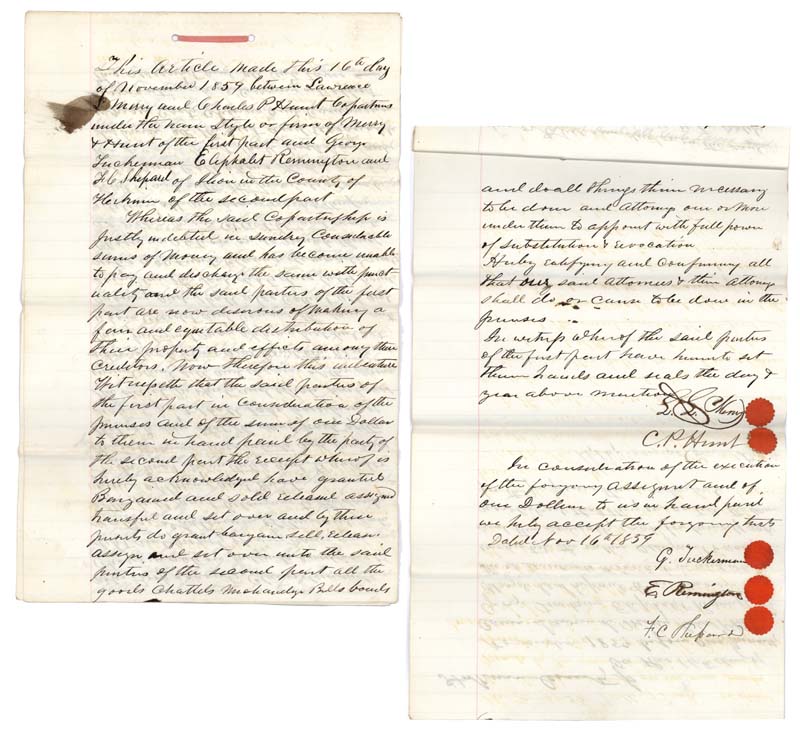 This Article made this 16th day
of November 1859 between Lawrence
L Merry and Charles P Hunt Copartners
under the name Style or firm of Merry
& Hunt of the first part and George
Tuckerman Eliphalet Remington and
F C Shepard of Ilion in the County of
Herkimer of the second part
Whereas the said Copartnership is
justly indebted in sundry Considerable
sums of Money and has become unable
to pay and discharge the same with punct
uality and the said parties of the first
part are now desirous of making a
fair and equitable distribution of
their property and effects among their
Creditors. Now therefore this indenture
Witnesseth that the said parties of
the first part in Consideration of the
premises and of the sum of one Dollar
to them in hand paid by the party of
the second part the receipt whereof is
hereby acknowledged have granted
Bargained and sold released assigned
transfed and set over and by these
presents do grant bargain sell, release
assign and set over unto the said
parties of the second part all the
goods Chattels Mchandze Bills bonds
and do all things therein necessary
to be done and Attorney one or More
under them to appoint with full power
of substitution & revocation
Hereby ratifying and Confirming all
that our said Attornies & their Attorney
shall do or Cause to be done in the
premises
In witness whereof the said parties
of the first part have hereunto set
their hands and seals the day &
year above mention
C. P. Hunt
In consideration of the execution
of the forgoing Assignment and of
one Dollar to us in hand paid
we hereby accept the forgoing trust
Dated Nov 16th 1859
G. Tuckerman
E. Remington
F. C Shepard